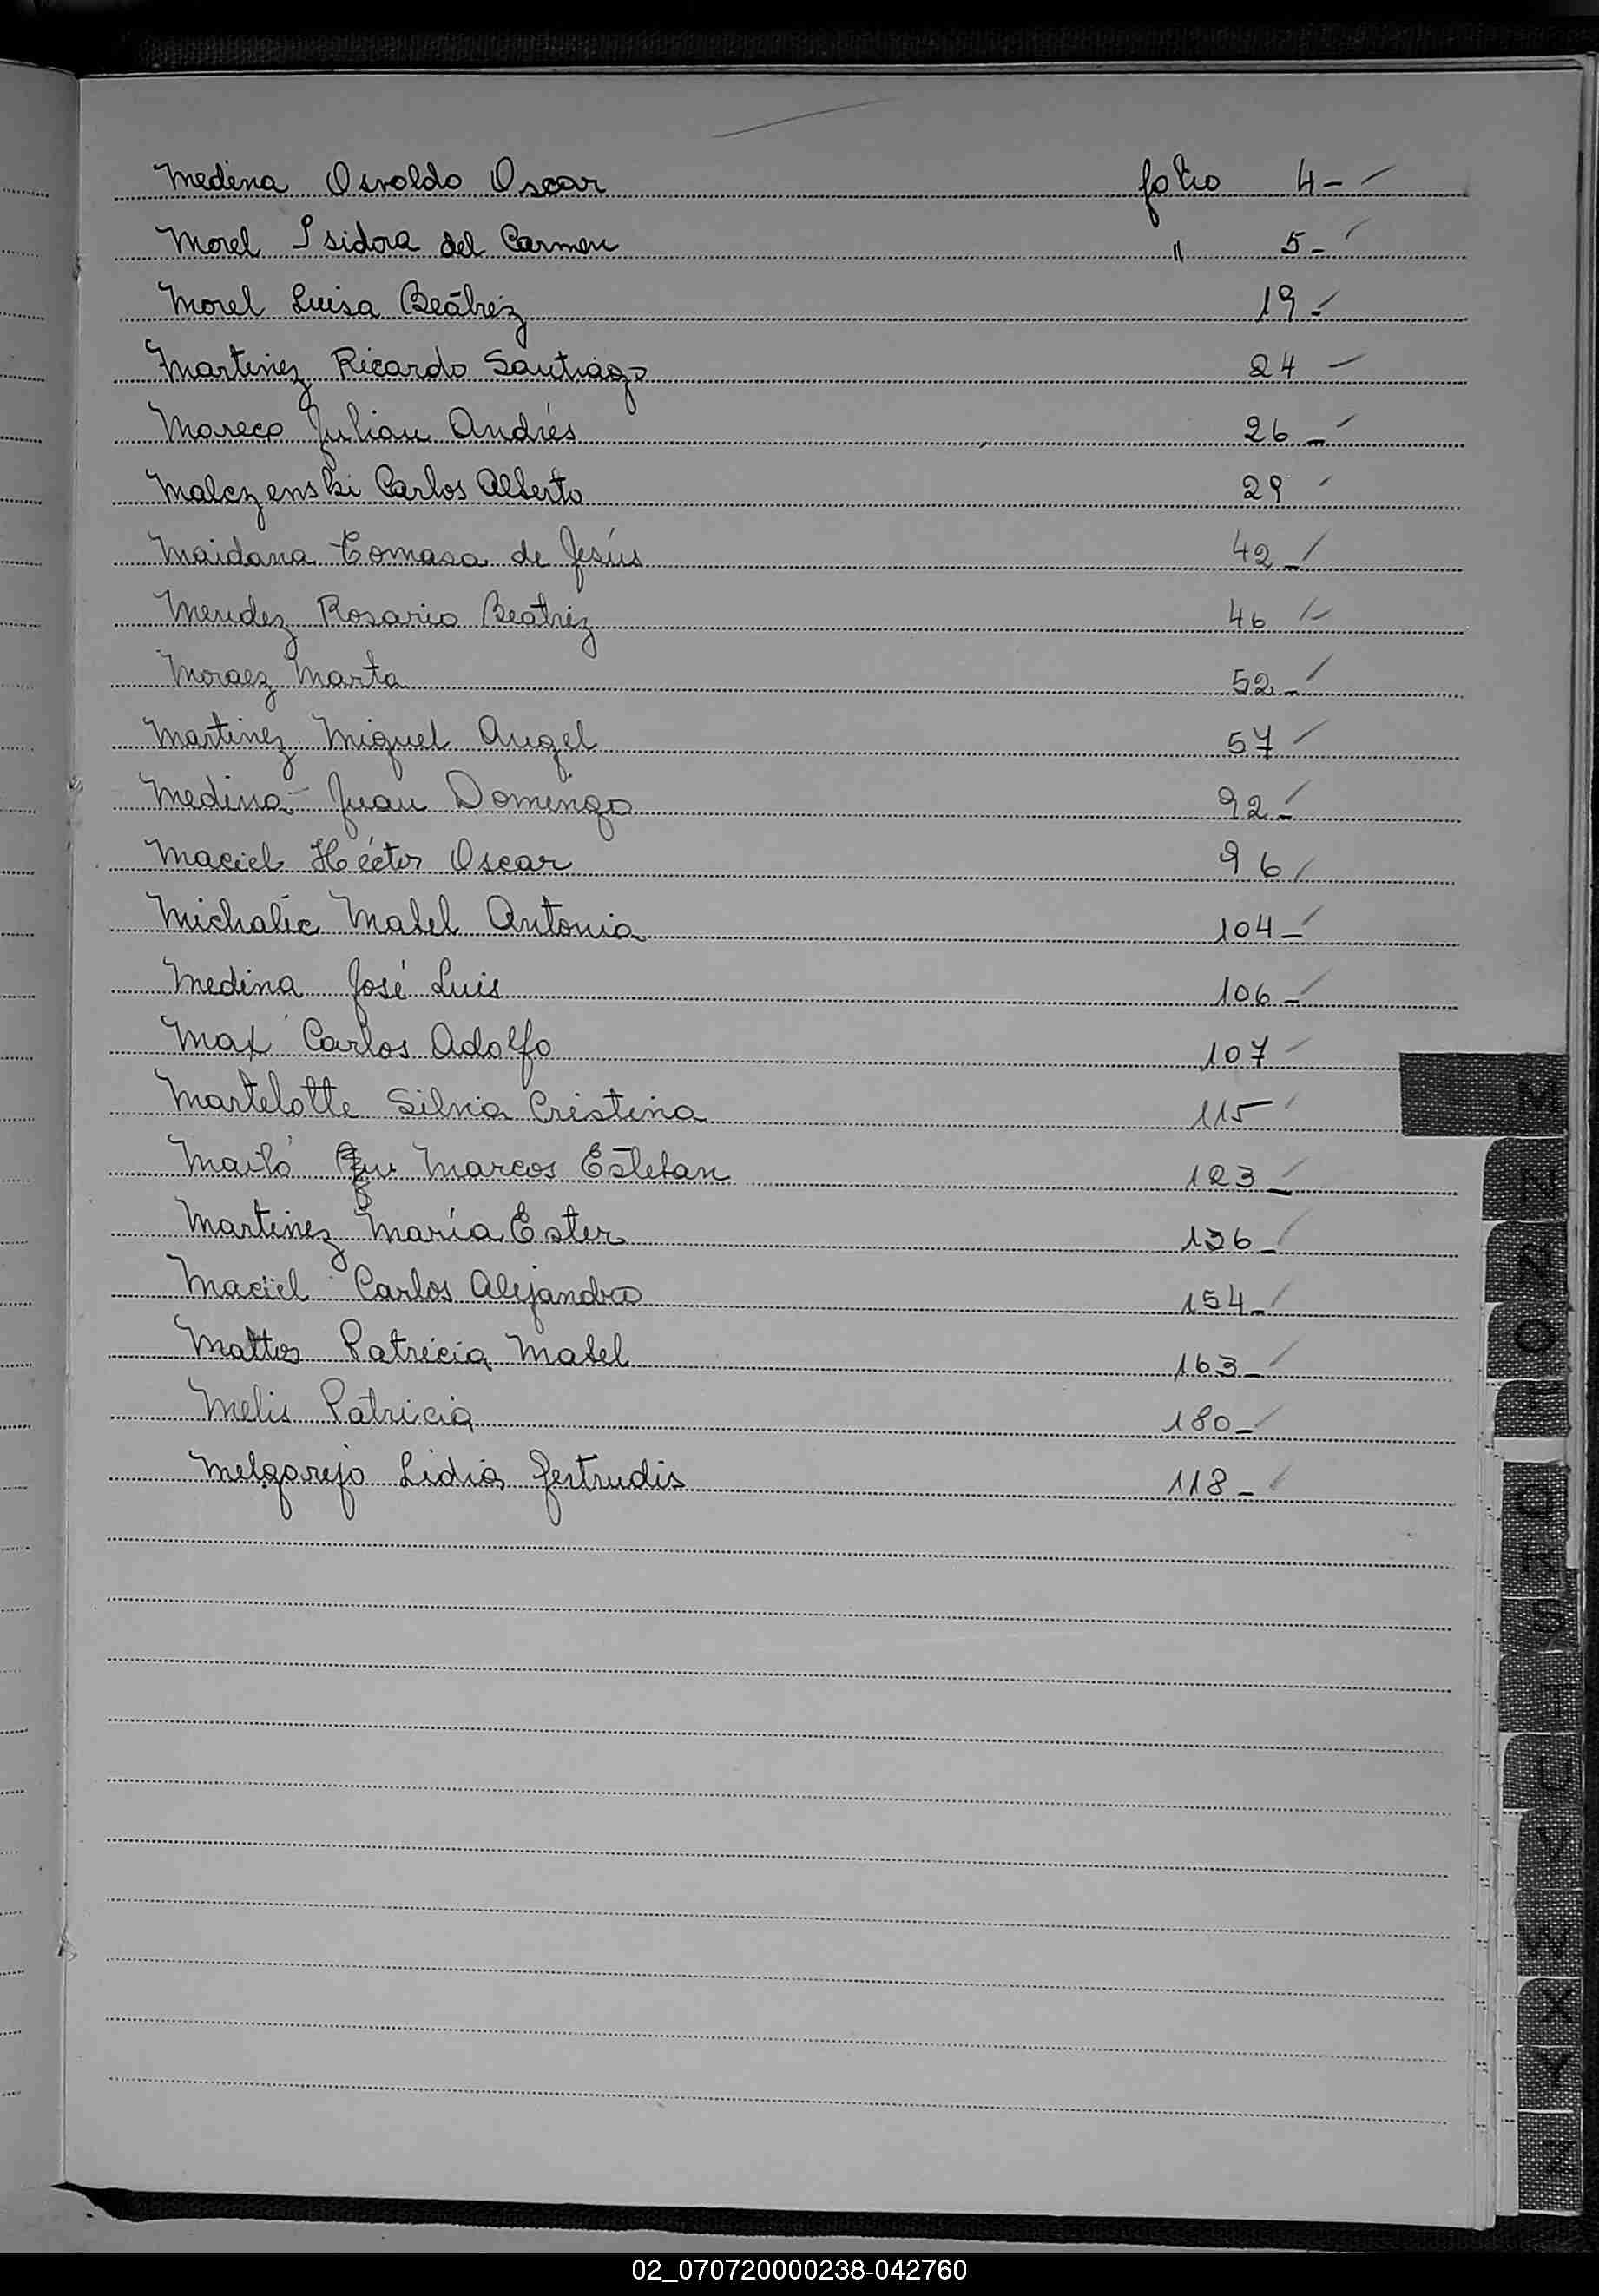 Medina Osvaldo Oscar folio 4-
Morel Isidora del Carmen " 5-
Morel Luisa Beátriz 19-
Martinez Ricardo Santiago 24
Moreco Julian Andrés 26-
Malczenski Carlos Alberto 29
Maidana Tomasa de Jesús 42-
Mendez Rosario Beatriz 46
Moraez Marta 52-
Martinez Miguel Angel 57
Medina Juan Domingo 92-
Maciel Héctor Oscar 96
Michalic Mabel Antonia 104-
Medina José Luis 106-
Max Carlos Adolfo 107
Martelotte Silvia Cristina 115
Marcos Esteban 123-
Martinez María Ester 136-
Maciel Carlos Alejandro 154-
Mattos Patricia Mabel 163-
Melis Patricia 180-
Melgarejo Lidia Gertrudis 118-
M
N
Ñ
O
Q
R
S
U
V
W
X
Y
Z
02_070720000238-042760